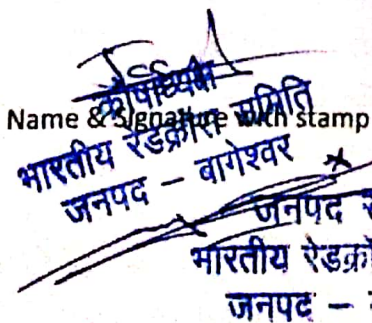 कोषाध्यक्ष
Name & Signature with stamp
भारतीय रेडक्रास समिति
जनपद – बागेश्वर
जनपद
भारतीय रेडक्रॉ
जनपद –